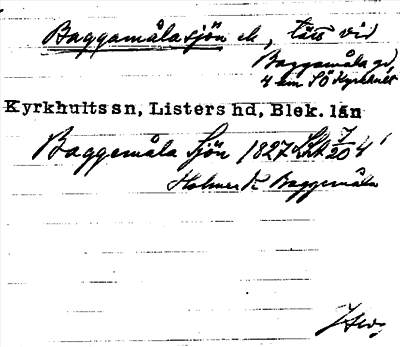 Baggamålasjön ek, tätt vid
Baggamåla gd,
4 km SÖ Kyrkhult
Kyrkhults sn, Listers hd, Blek. län
Baggemåla Sjön 1827 LSA 7/20 4
Holmer K Baggemåla